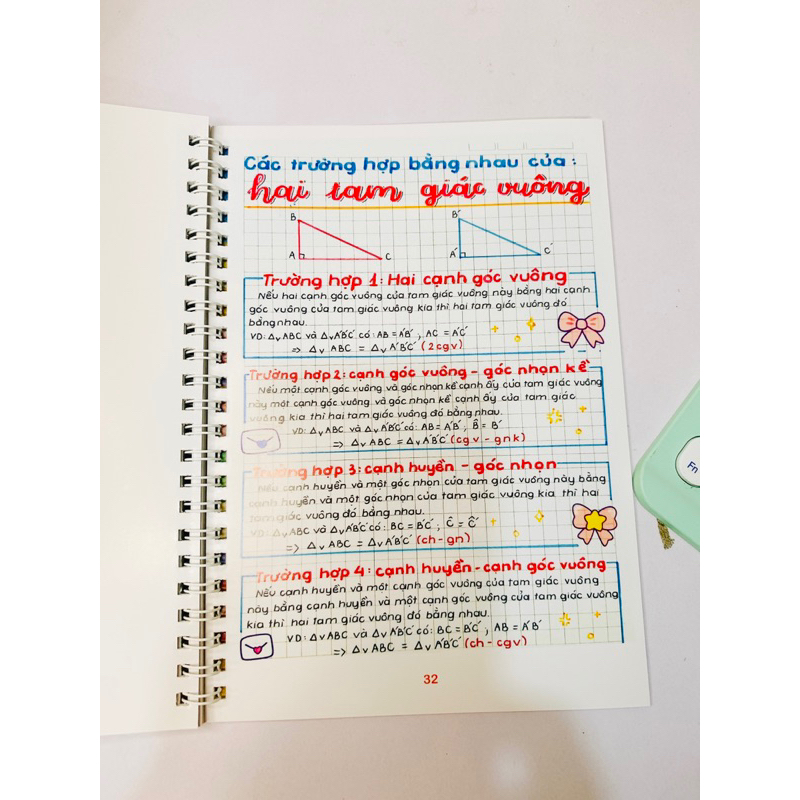 Các trường hợp bằng nhau của:
hai tam giác vuông
B
A
C
B'
A'
C'
Trường hợp 1: Hai cạnh góc vuông
Nếu hai cạnh góc vuông của tam giác vuông này bằng hai cạnh
góc vuông của tam giác vuông kia thì hai tam giác vuông đó
bằng nhau.
VD: ΔvABC và ΔvA'B'C' có: AB = A'B', AC = A'C'
=> Δv ABC = Δv A'B'C' (2cgv)
Trường hợp 2: cạnh góc vuông - góc nhọn kề
Nếu một cạnh góc vuông và góc nhọn kề cạnh ấy của tam giác vuông
này một cạnh góc vuông và góc nhọn kề cạnh ấy của tam giác
vuông kia thì hai tam giác vuông đó bằng nhau.
VD: ΔvABC và ΔvA'B'C' có: AB = A'B', B̂ = B'
=> Δv ABC = Δv A'B'C' (cgv - gnk)
Trường hợp 3: cạnh huyền - góc nhọn
Nếu cạnh huyền và một góc nhọn của tam giác vuông này bằng
cạnh huyền và một góc nhọn của tam giác vuông kia thì hai
tam giác vuông đó bằng nhau.
VD: ΔvABC và ΔvA'B'C' có: BC = B'C', Ĉ = Ĉ'
=> Δv ABC = Δv A'B'C' (ch-gn)
Trường hợp 4: cạnh huyền - cạnh góc vuông
Nếu cạnh huyền và một cạnh góc vuông của tam giác vuông
này bằng cạnh huyền và một cạnh góc vuông của tam giác vuông
kia thì hai tam giác vuông đó bằng nhau.
VD: ΔvABC và ΔvA'B'C' có: BC = B'C', AB = A'B'
=> Δv ABC = Δv A'B'C' (ch - cgv)
32
Fn